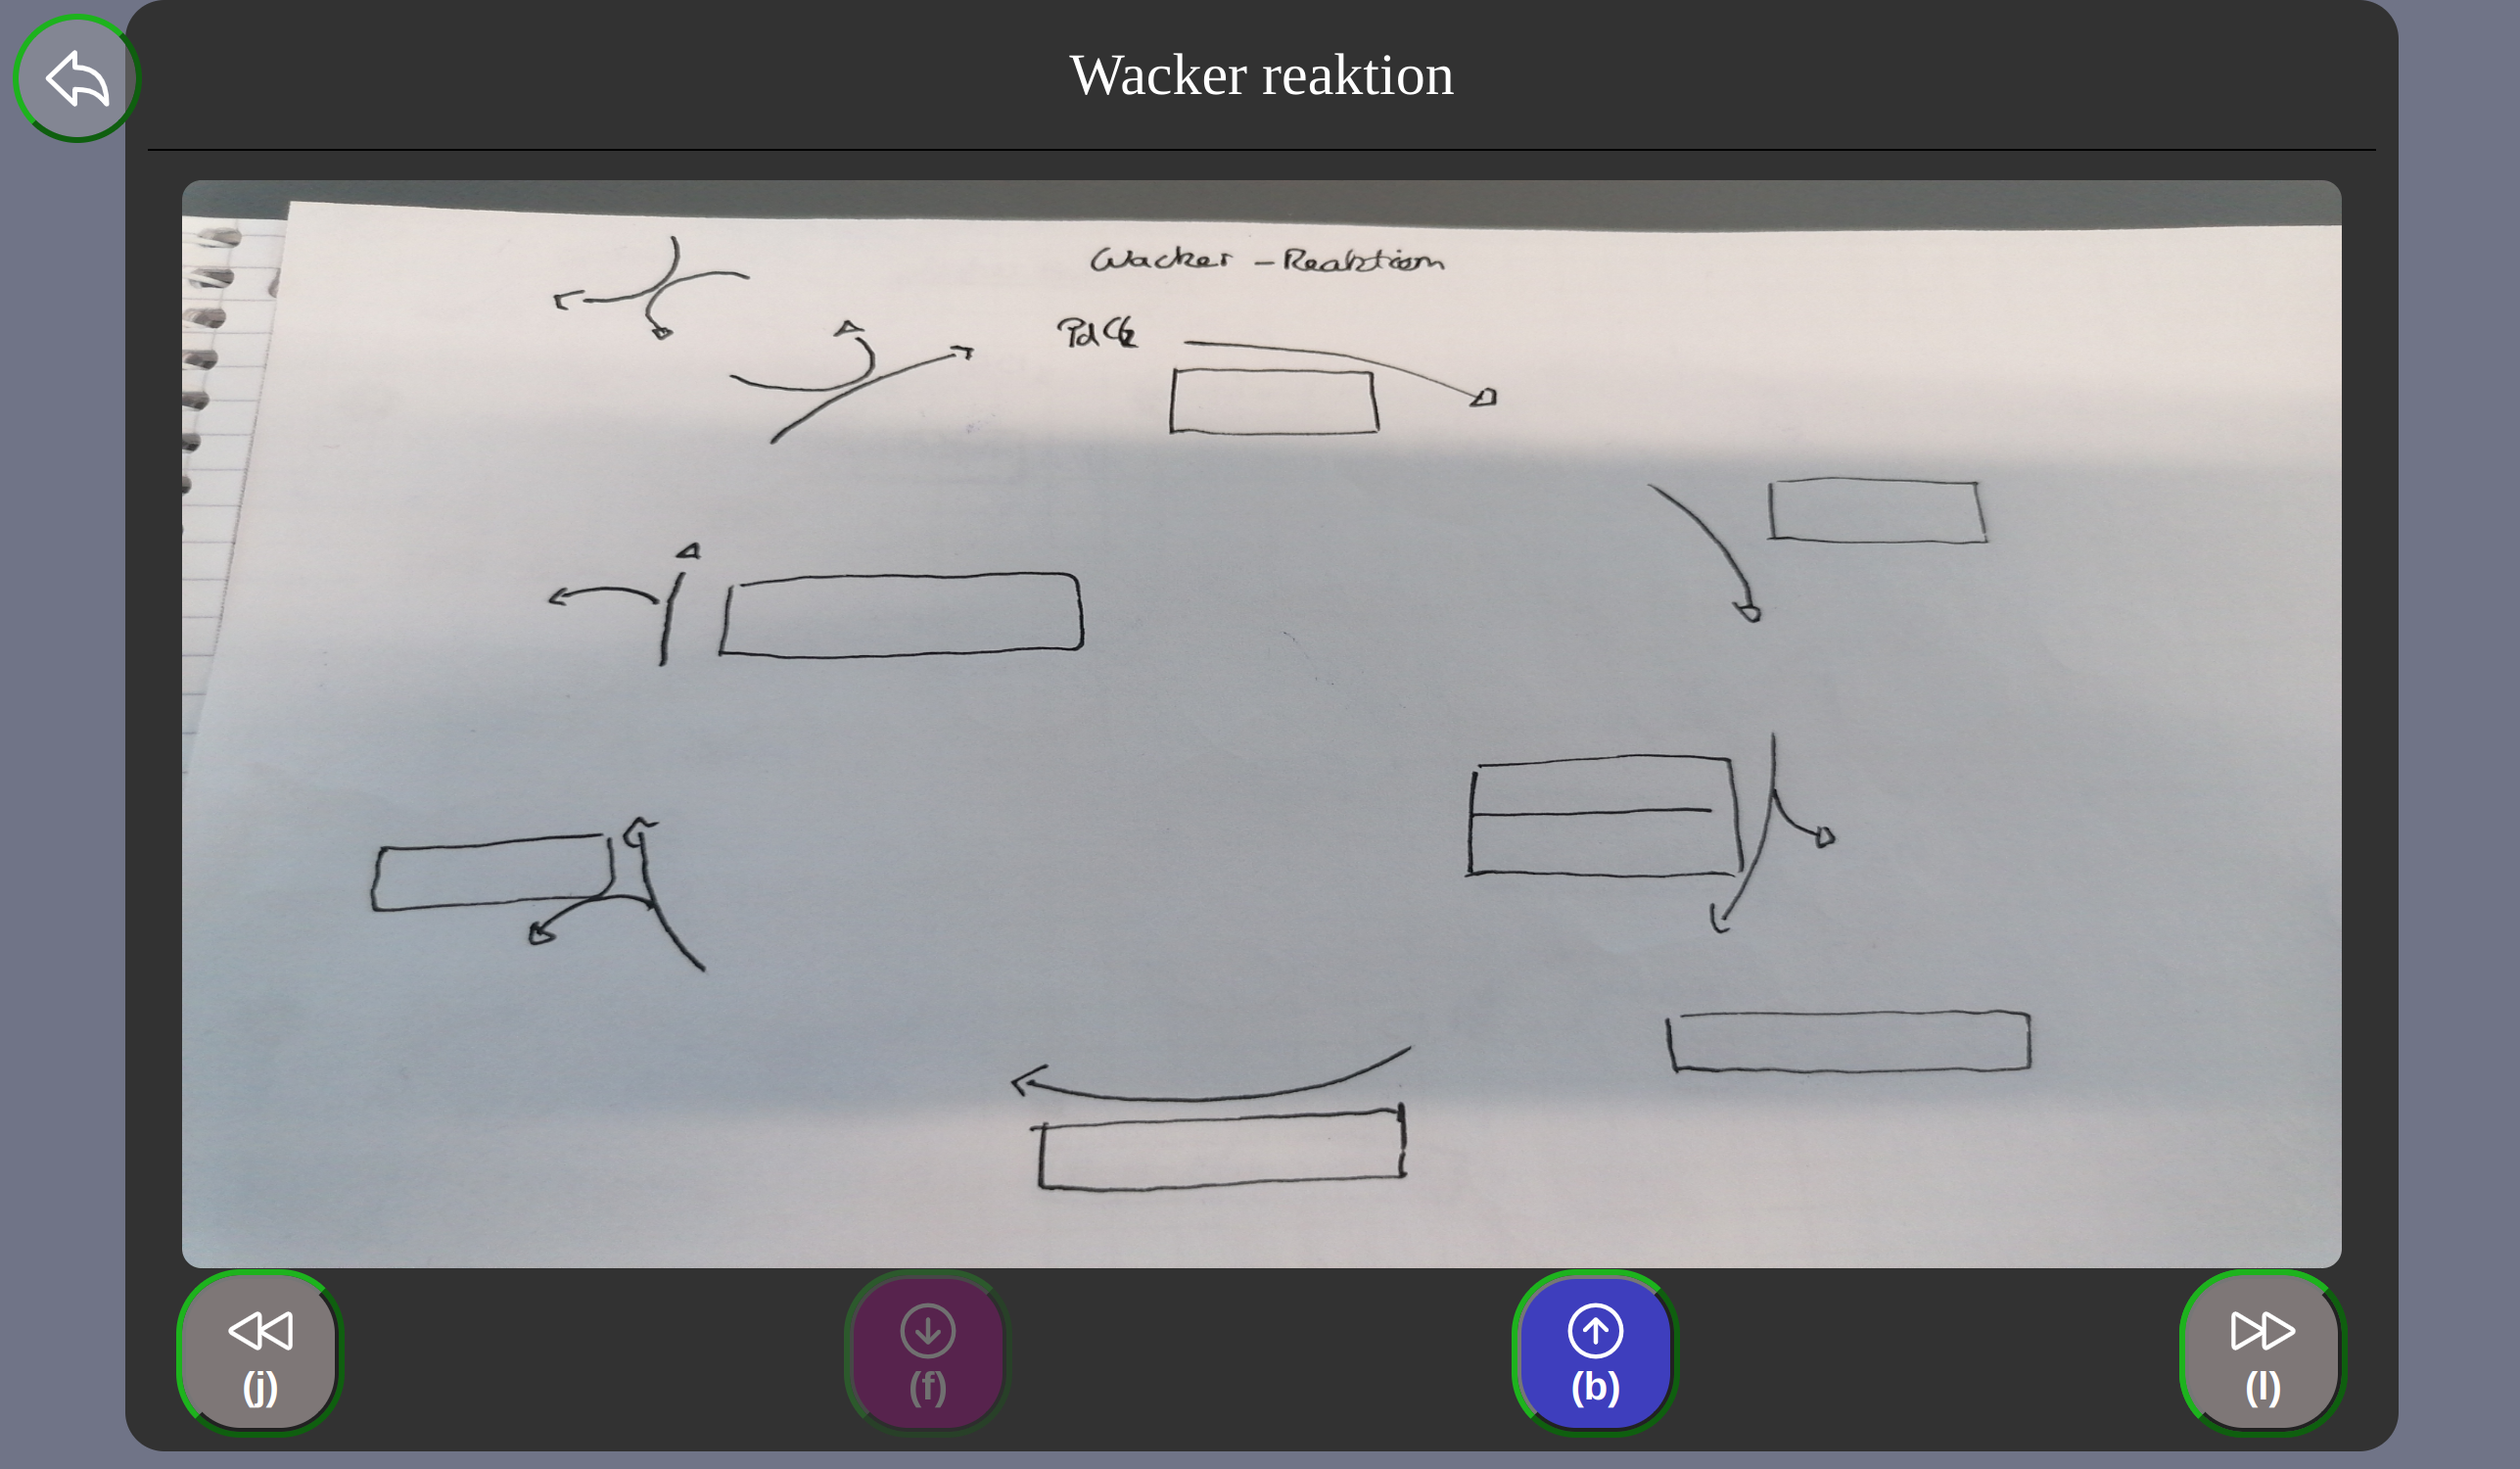 Wacker reaktion
Wacker - Reaktion
PdCl2
(j)
(f)
(b)
(l)